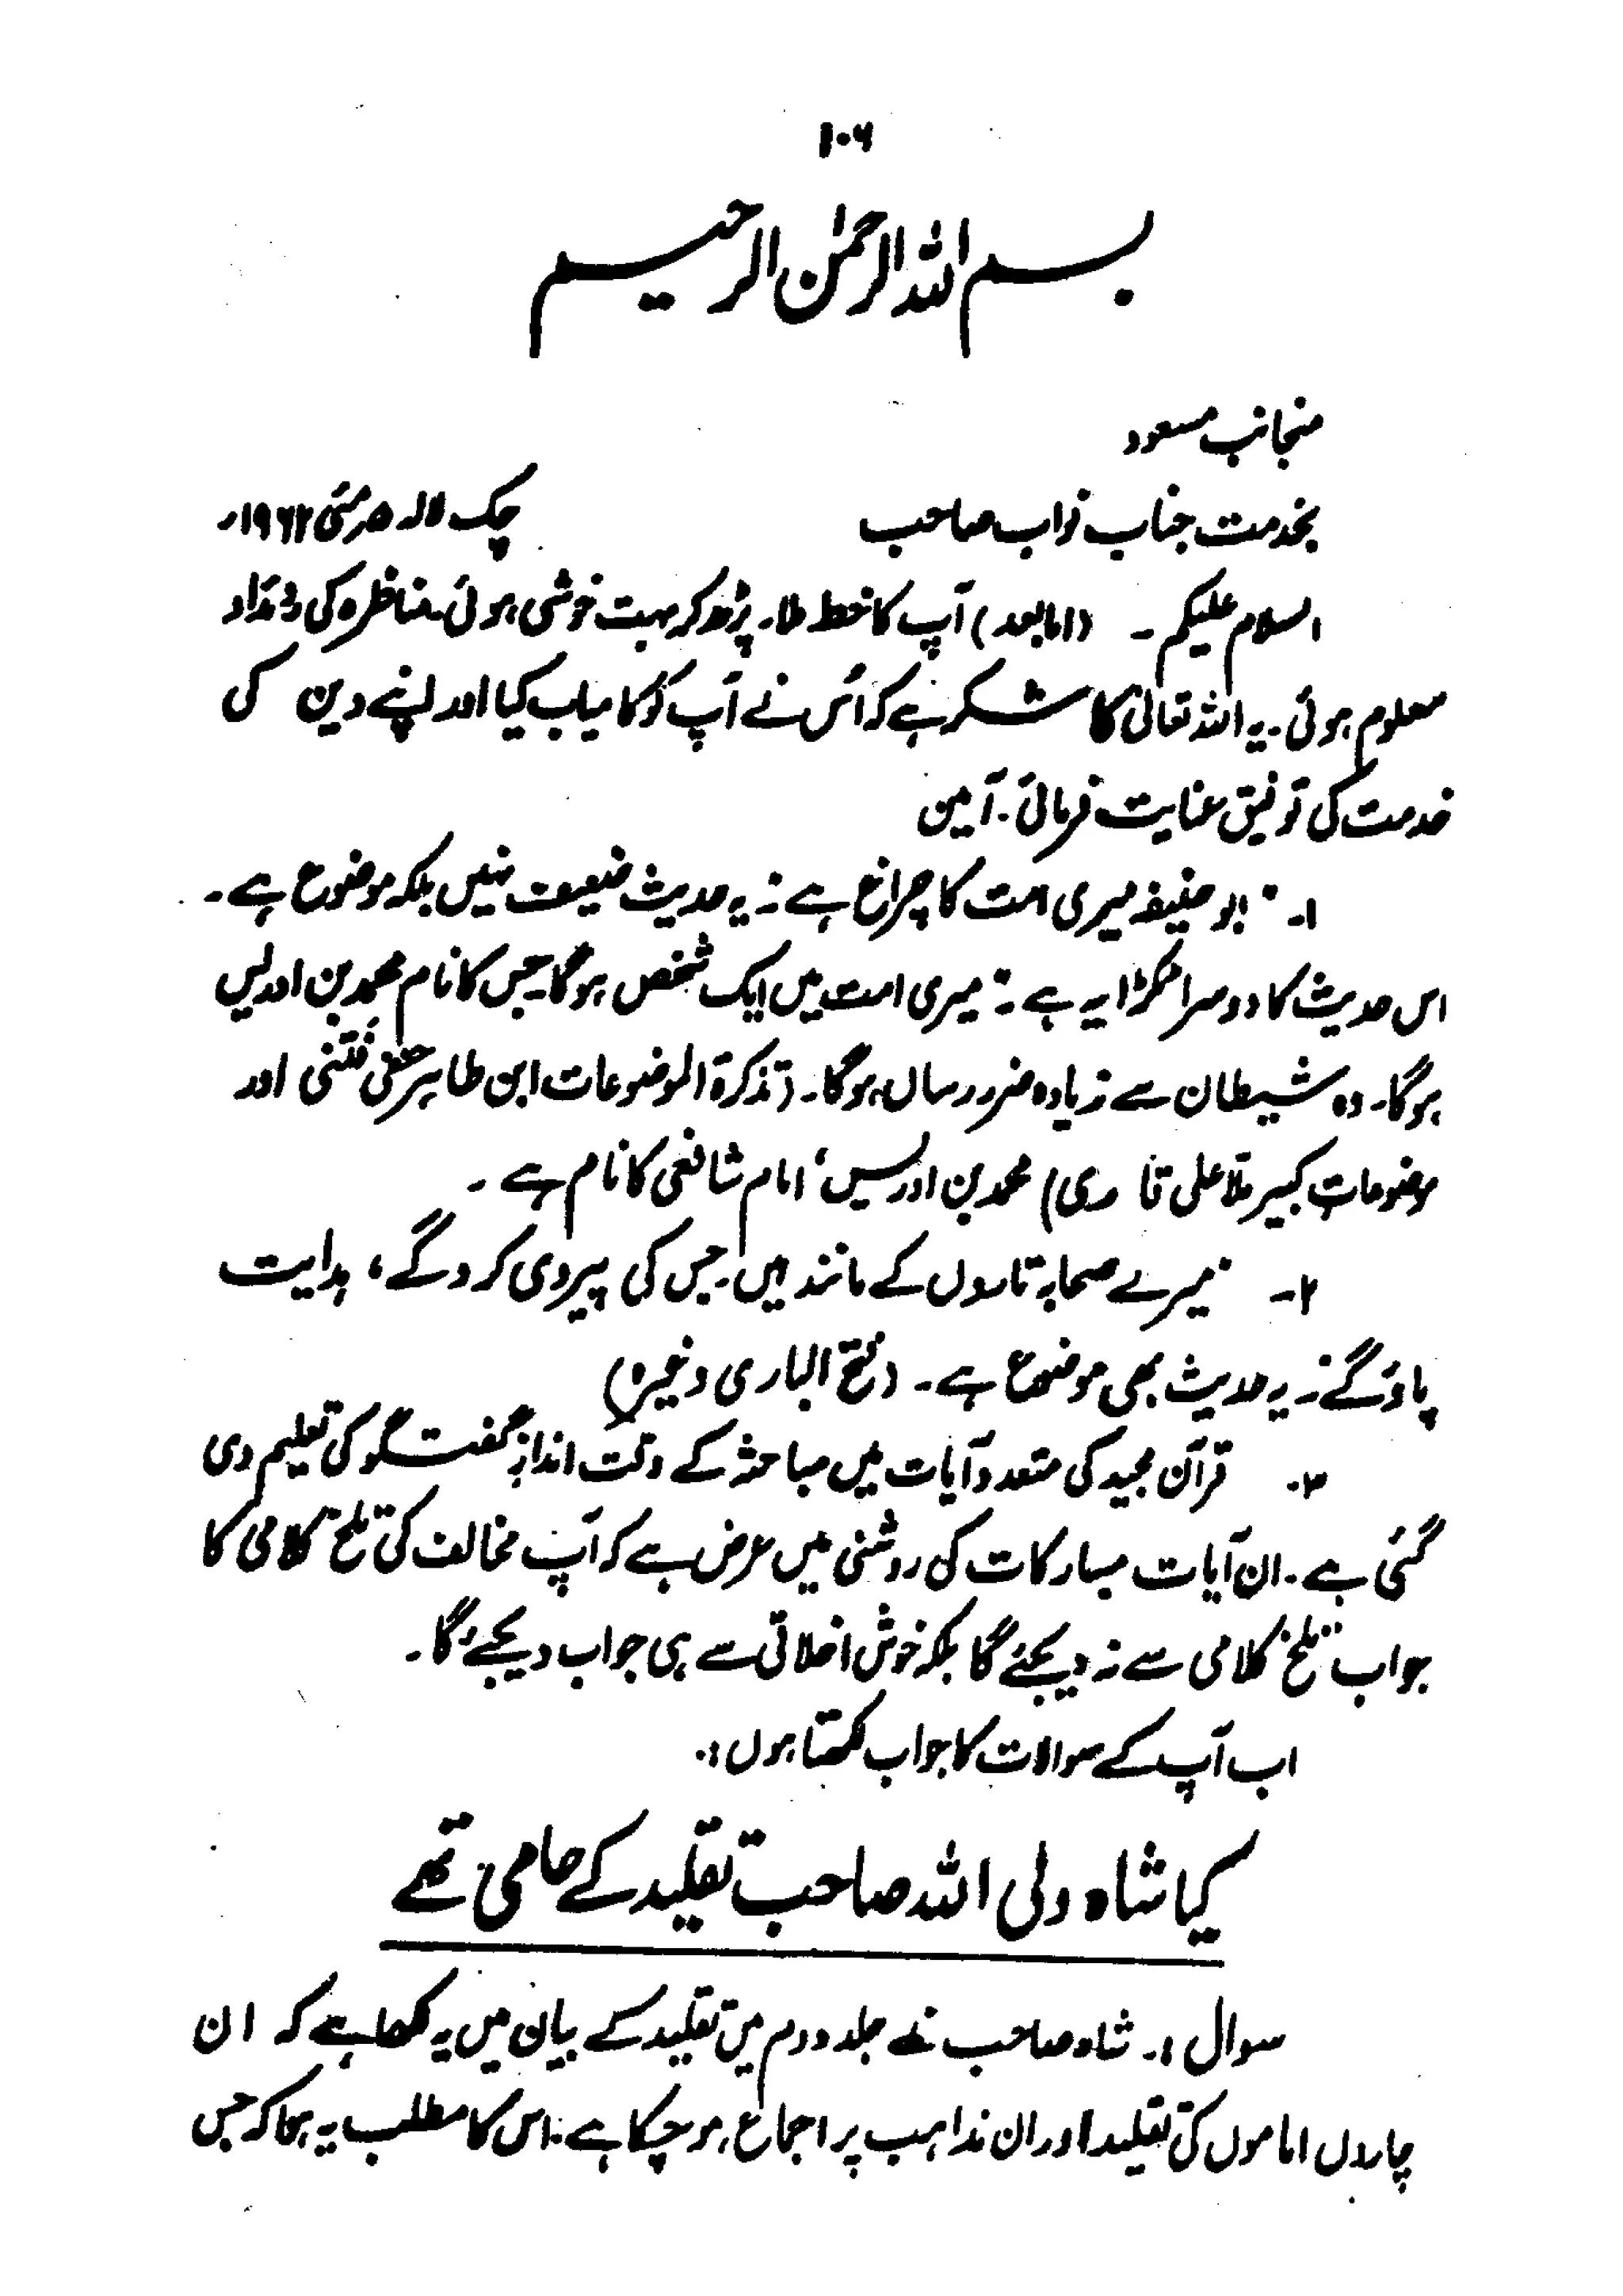 ۱۰۶
بسم اللہ الرحمٰن الرحیم
منجانب مسعود
بخدمت جناب نواب صاحب چک لالہ ۵ مئی ۱۹۶۲ء
السلام علیکم۔ (اما بعد) آپ کا خط ملا۔ پڑھ کر بہت خوشی ہوئی۔ مناظرہ کی روئداد
معلوم ہوئی۔ یہ اللہ تعالیٰ کا شکر ہے کہ اُس نے آپ کو کامیاب کیا اور اپنے دین کی
خدمت کی توفیق عنایت فرمائی۔ آمین
۱۔ "ابو حنیفہ میری امت کا چراغ ہے"۔ یہ حدیث ضعیف نہیں بلکہ موضوع ہے۔
اس حدیث کا دوسرا ٹکڑا یہ ہے۔ "میری امت میں ایک شخص ہوگا۔ جس کا نام محمد بن ادریس
ہوگا۔ وہ شیطان سے زیادہ ضرر رساں ہوگا۔ (تذکرۃ الموضوعات ابن طاہر حنفی فتنی اور
موضوعات کبیر ملا علی قاری) محمد بن ادریس، امام شافعی کا نام ہے۔
۲۔ "میرے صحابہ تاروں کے مانند ہیں۔ جس کی پیروی کروگے، ہدایت
پاؤگے"۔ یہ حدیث بھی موضوع ہے۔ (فتح الباری وغیرہ)
۳۔ قرآن مجید کی متعدد آیات میں مباحثہ کے وقت اندازِ گفتگو کی تعلیم دی
گئی ہے۔ ان آیات مبارکات کی روشنی میں عرض ہے کہ آپ مخالف کی تلخ کلامی کا
جواب تلخ کلامی سے نہ دیجئے گا بلکہ خوش اخلاقی سے ہی جواب دیجئے گا۔
اب آپ کے سوالات کا جواب لکھتا ہوں:۔
کیا شاہ ولی اللہ صاحب تقلید کے حامی تھے
سوال :۔ شاہ صاحب نے جلد دوم میں تقلید کے بیان میں یہ لکھا ہے کہ ان
چاروں اماموں کی تقلید اور ان مذاہب پر اجماع ہو چکا ہے۔ اس کا مطلب یہ ہوا کہ جس